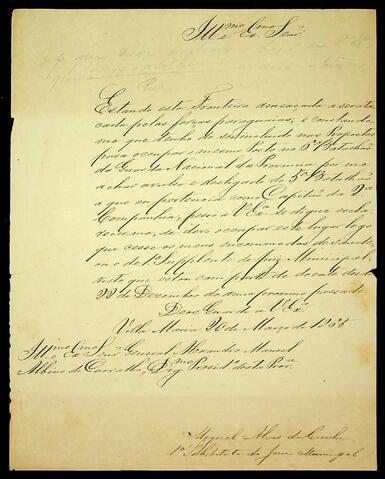 Ill.mo e Ex.mo Senr.
Estando esta Fronteira ameaçada a ser ata
cada pelas forças paraguaias, e constando
me que tenho de
para occupar o mesmo Posto no 6º Batalhão
da Guarda Nacional da Provincia por me
achar avulso e desligado do 5º Batalhão
a que eu pertencia como Capitão da 2ª
Companhia, peço a V Ex.ª se digne escla
recer-me, se devo occupar este lugar logo
que cesse os meus encommodos de saude,
ou o de 1º Supplente de Juiz Municipal,
visto que estou com parte de doente desde
22 de Dezembro do anno proximo passado.
Deos Guarde a V Ex.ª
Villa Maria 20 de Março de 1865
Ill.mo e Ex.mo Senr General Alexandre Manoel
Albino de Carvalho, D.mo Presid.e desta Prov.ª
Miguel Alves da Cunha
1º Substituto do Juiz Municipal